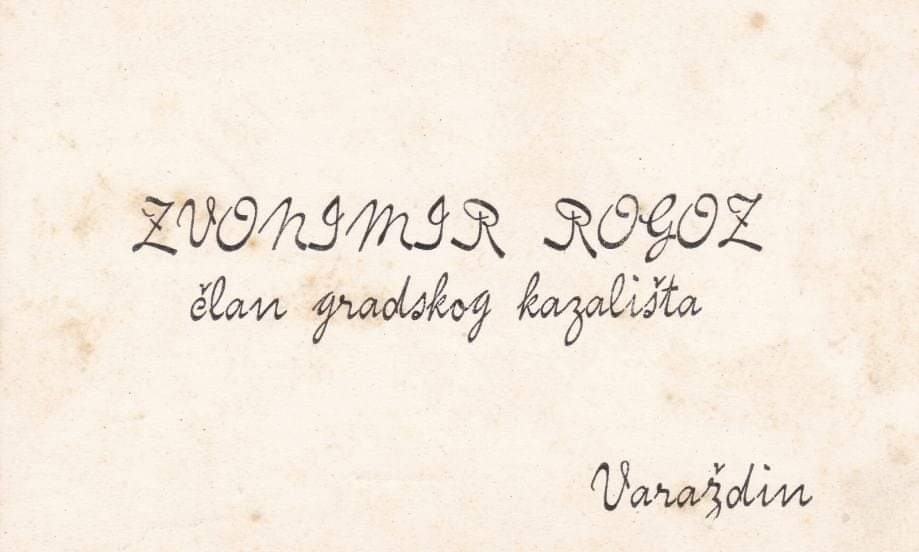 ZVONIMIR ROGOZ
član gradskog kazališta
Varaždin